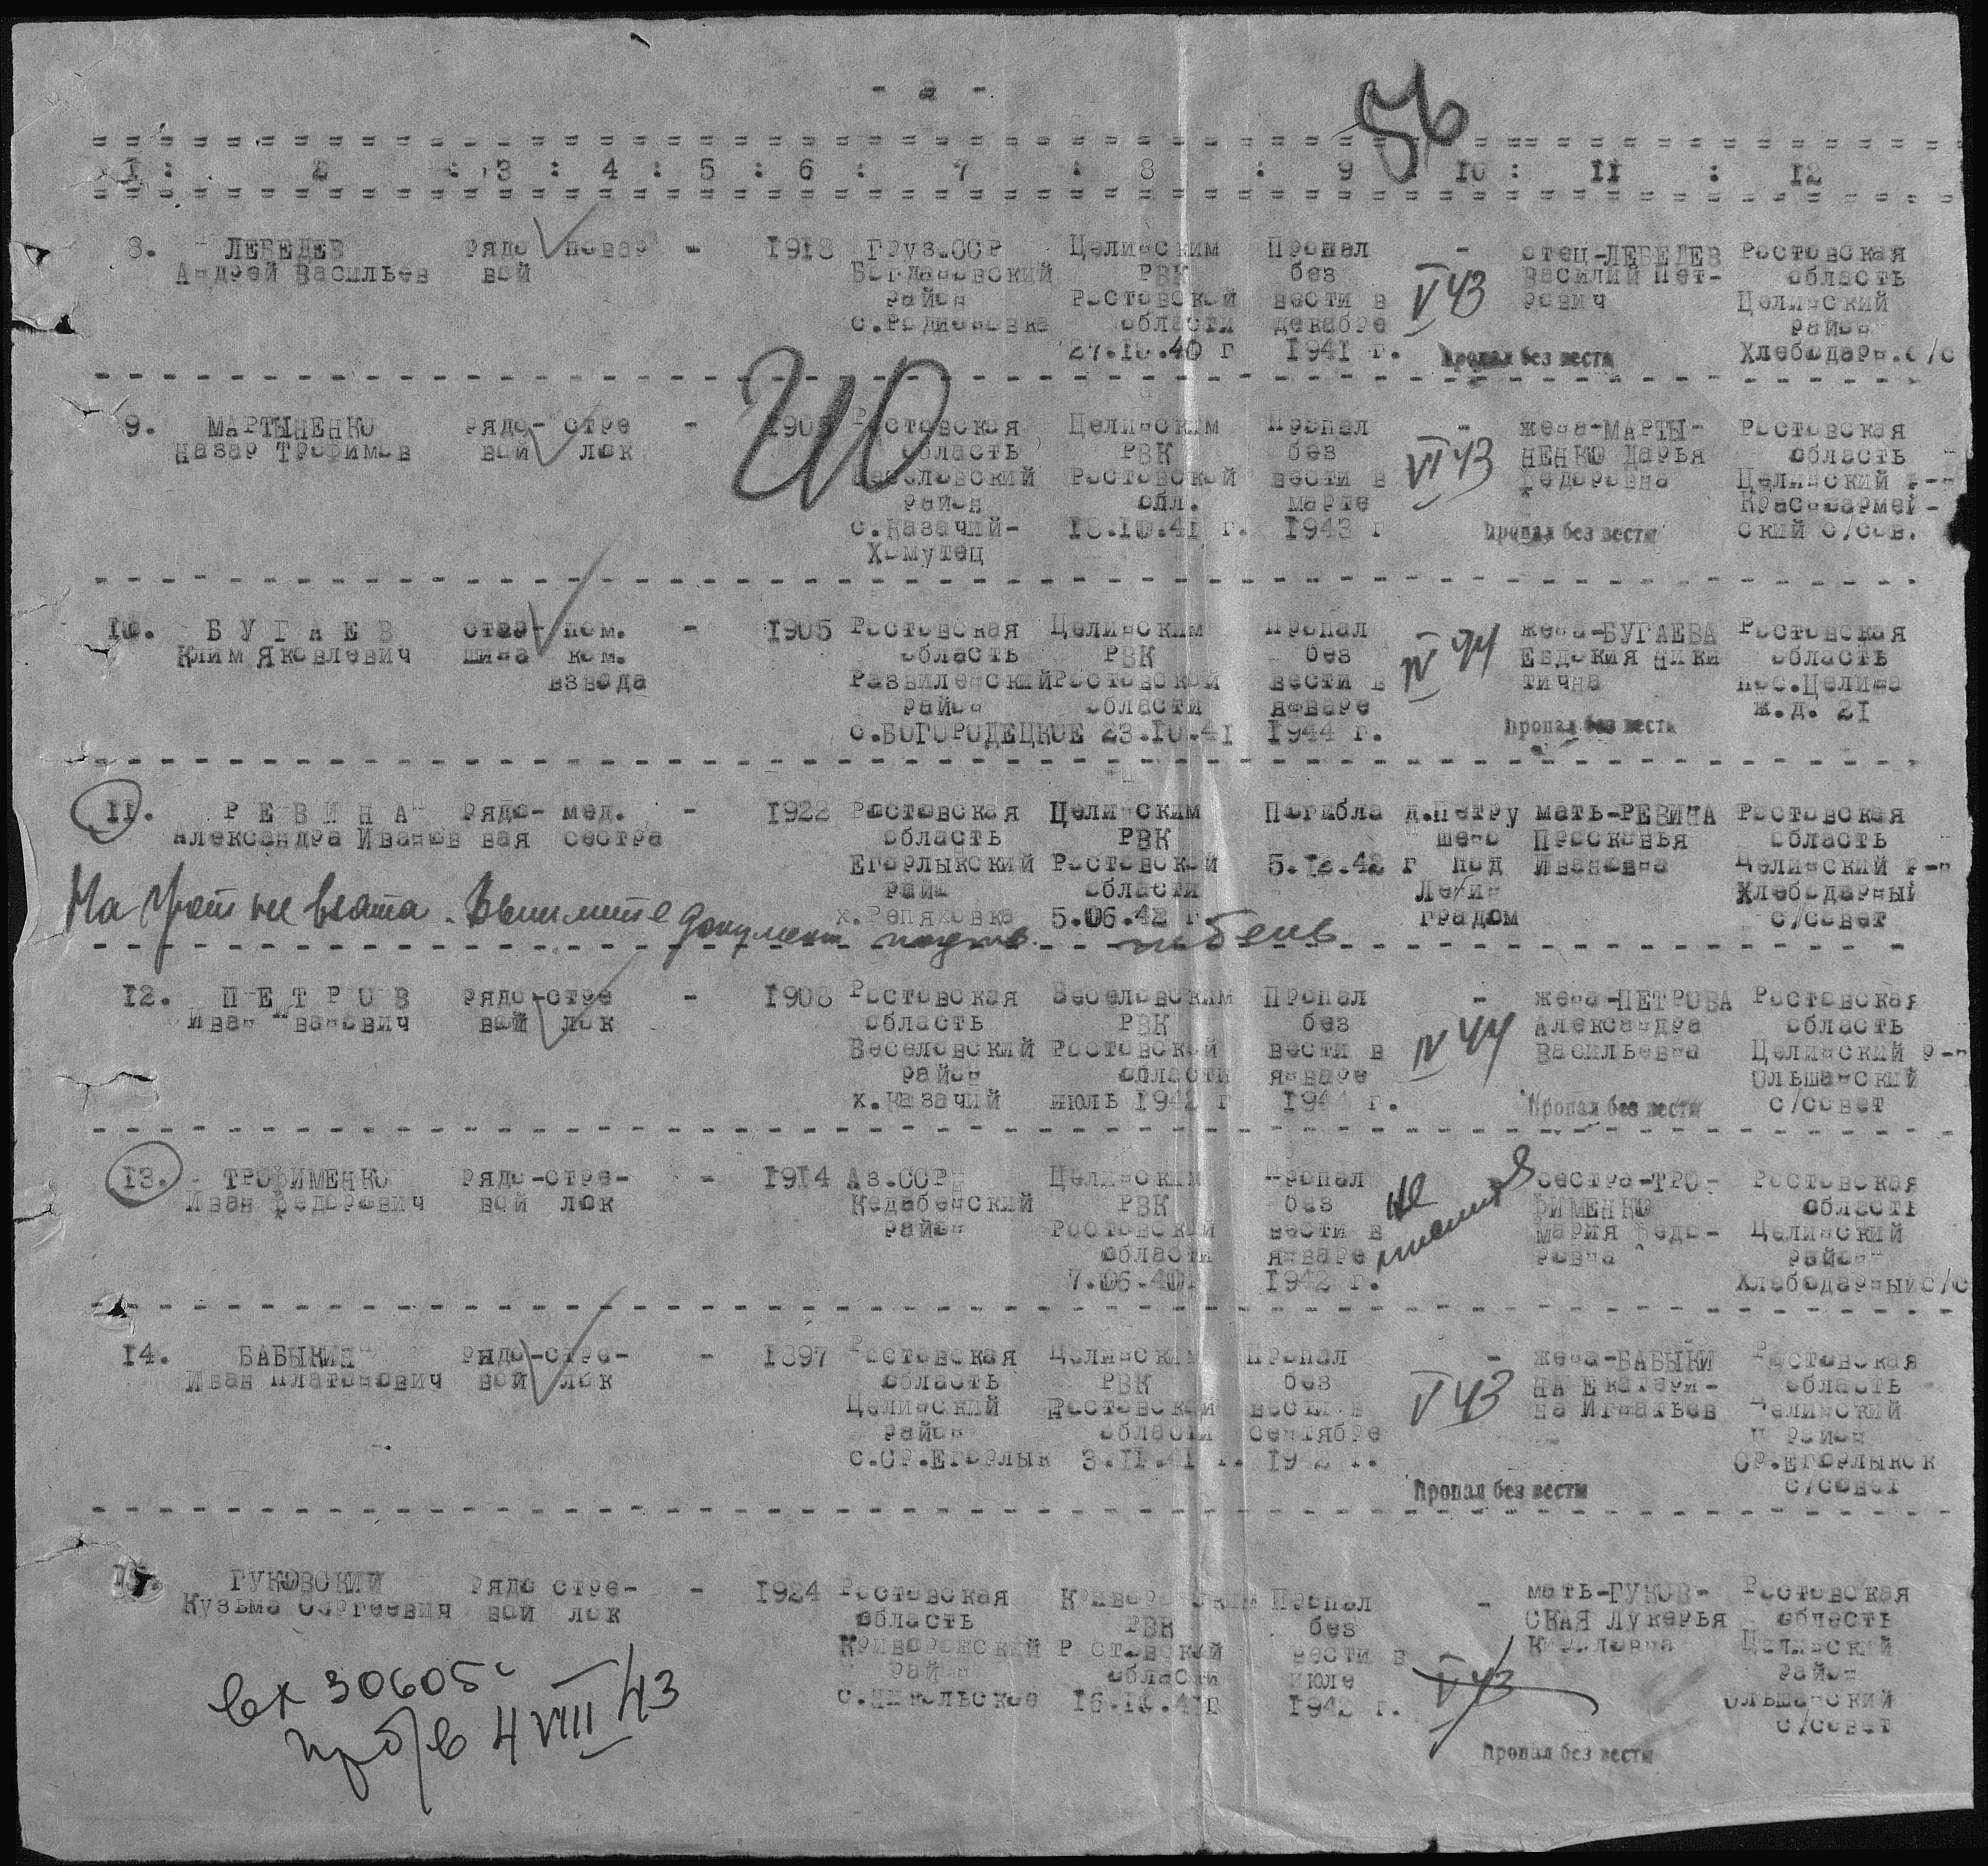 - 2 -
56
1 : 2 : 3 : 4 : 5 : 6 : 7 : 8 : 9 : 10 : 11 : 12
8. ЛЕБЕДЕВ рядо повар - 1918 Груз.ССР Целинским Пропал - отец-ЛЕБЕДЕВ Ростовская
Андрей Васильев вой Богдановский РВК без Василий Пет- область
район Ростовской вести в V 43 рович Целинский
с.Родионовка области декабре район
27.10.40 г 1941 г. Пропал без вести Хлебодарн.с/с
9. МАРТЫНЕНКО рядо- стре - Ростовская Целинским Пропал - жена-МАРТЫ- Ростовская
Назар Трофимов вой лок область РВК без VI 43 НЕНКО Дарья область
Веселовский Ростовской вести в Федоровна Целинский р-н
район обл. марте Красноармей-
с.Казачий- 18.10.41 г. 1943 г Пропал без вести ский с/сов.
Хомутец
10. Б У Г А Е В стар- пом. - 1905 Ростовская Целинским Пропал жена-БУГАЕВА Ростовская
Клим Яковлевич шина ком. область РВК без IV 44 Евдокия Ники область
взвода Развиленский Ростовской вести в тична пос.Целина
район области январе ж.д. 21
с.БОГОРОДЕЦКОЕ 23.10.41 1944 г. Пропал без вести
11. Р Е В И Н А рядо- мед. - 1922 Ростовская Целинским Погибла д.Петру мать-РЕВИНА Ростовская
Александра Иванов вая сестра область РВК шено Просковья область
Егорлыкский Ростовской 5.12.42 г под Ивановна Целинский р-н
райн области Ленин Хлебодарный
х.Репяховка 5.06.42 г. градом с/совет
На учет не взята. Вышлите документ подтв. гибель
12. П Е Т Р О В рядо-стре - 1908 Ростовская Веселовским Пропал - жена-ПЕТРОВА Ростовская
Иван Иванович вой лок область РВК без IV 44 Александра область
Веселовский Ростовской вести в Васильевна Целинский р-н
район области январе Ольшанский
х.Казачий июль 1942 г 1944 г. Пропал без вести с/совет
13. ТРОФИМЕНКО рядо-стре- - 1914 Аз.ССР Целинским Пропал сестра-ТРО- Ростовская
Иван Федорович вой лок Кедабекский РВК без не ФИМЕНКО область
район Ростовской вести в Мария Федо- Целинский
области январе ровна район
7.06.40г 1942 г. Хлебодарный с/с
14. БАБЫКИН рядо-стре- - 1897 Ростовская Целинским Пропал - жена-БАБЫКИ Ростовская
Иван Платонович вой лок область РВК без V 43 НА Екатери- область
Целинский Ростовской вести в на Игнатьев Целинский
район области сентябре район
с.Ср.Егорлык 3.11.41 г. 1942 г. Ср.Егорлыкск
Пропал без вести с/совет
15. ГУКОВСКИЙ рядо стре- - 1924 Ростовская Криворожским Пропал - мать-ГУКОВ- Ростовская
Кузьма Сергеевич вой лок область РВК без СКАЯ Лукерья область
Криворожский Ростовской вести в Кириловна Целинский
район области июле V 43 район
с.Никольское 1942 г. V Ольшанский
с/совет
Пропал без вести
вх 30605с
пр б/в 4 VIII 43